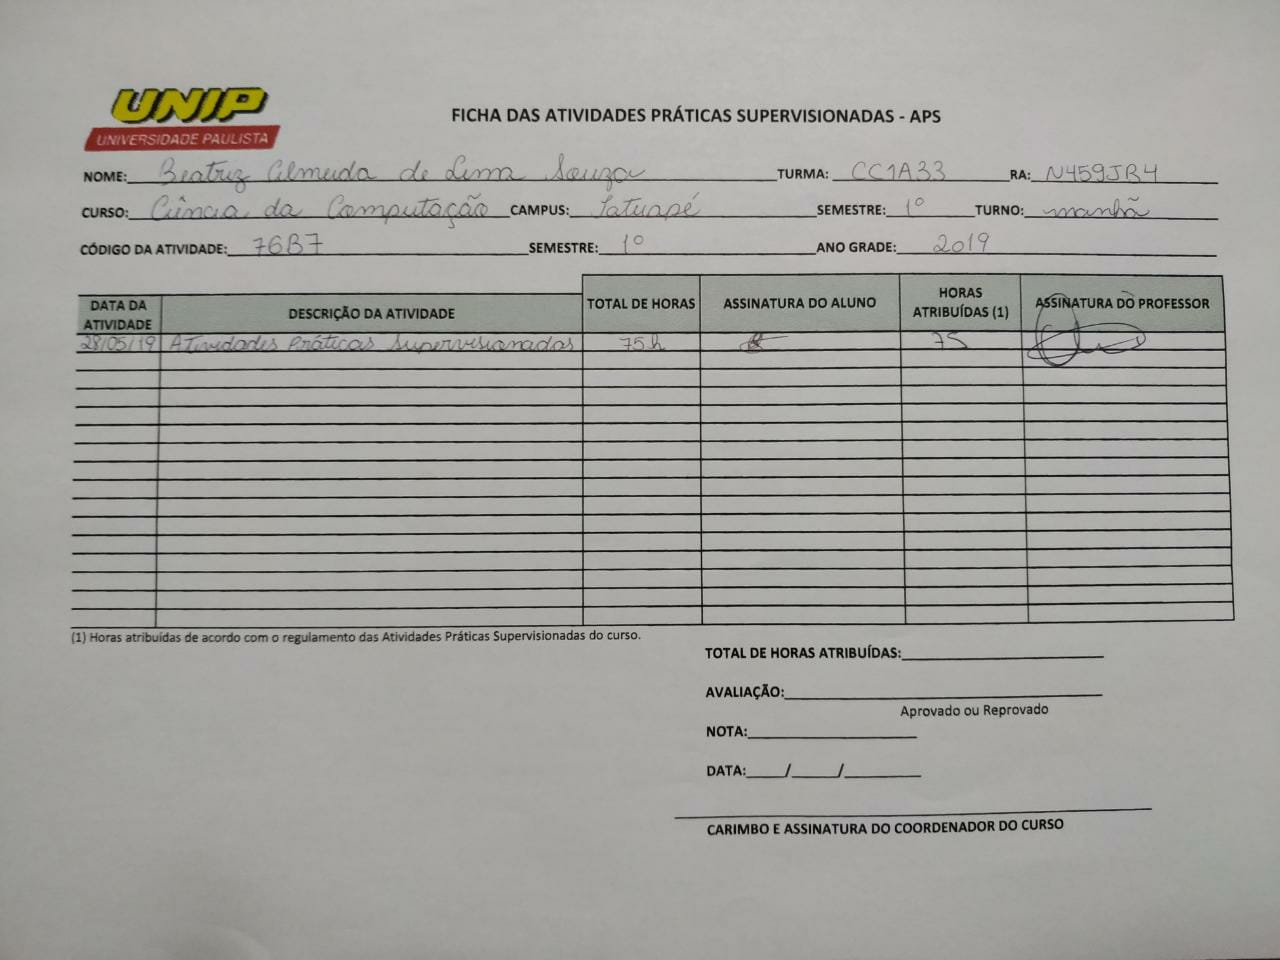 UNIP
UNIVERSIDADE PAULISTA
FICHA DAS ATIVIDADES PRÁTICAS SUPERVISIONADAS - APS
NOME: Beatriz Almeida de Lima Souza TURMA: CC1A33 RA: N459JB4
CURSO: Ciência da Computação CAMPUS: Tatuapé SEMESTRE: 1º TURNO: manhã
CÓDIGO DA ATIVIDADE: 76B7 SEMESTRE: 1º ANO GRADE: 2019
DATA DA ATIVIDADE DESCRIÇÃO DA ATIVIDADE TOTAL DE HORAS ASSINATURA DO ALUNO HORAS ATRIBUÍDAS (1) ASSINATURA DO PROFESSOR
28/05/19 Atividades Práticas Supervisionadas 75h 75
(1) Horas atribuídas de acordo com o regulamento das Atividades Práticas Supervisionadas do curso.
TOTAL DE HORAS ATRIBUÍDAS:
AVALIAÇÃO:
Aprovado ou Reprovado
NOTA:
DATA: / /
CARIMBO E ASSINATURA DO COORDENADOR DO CURSO